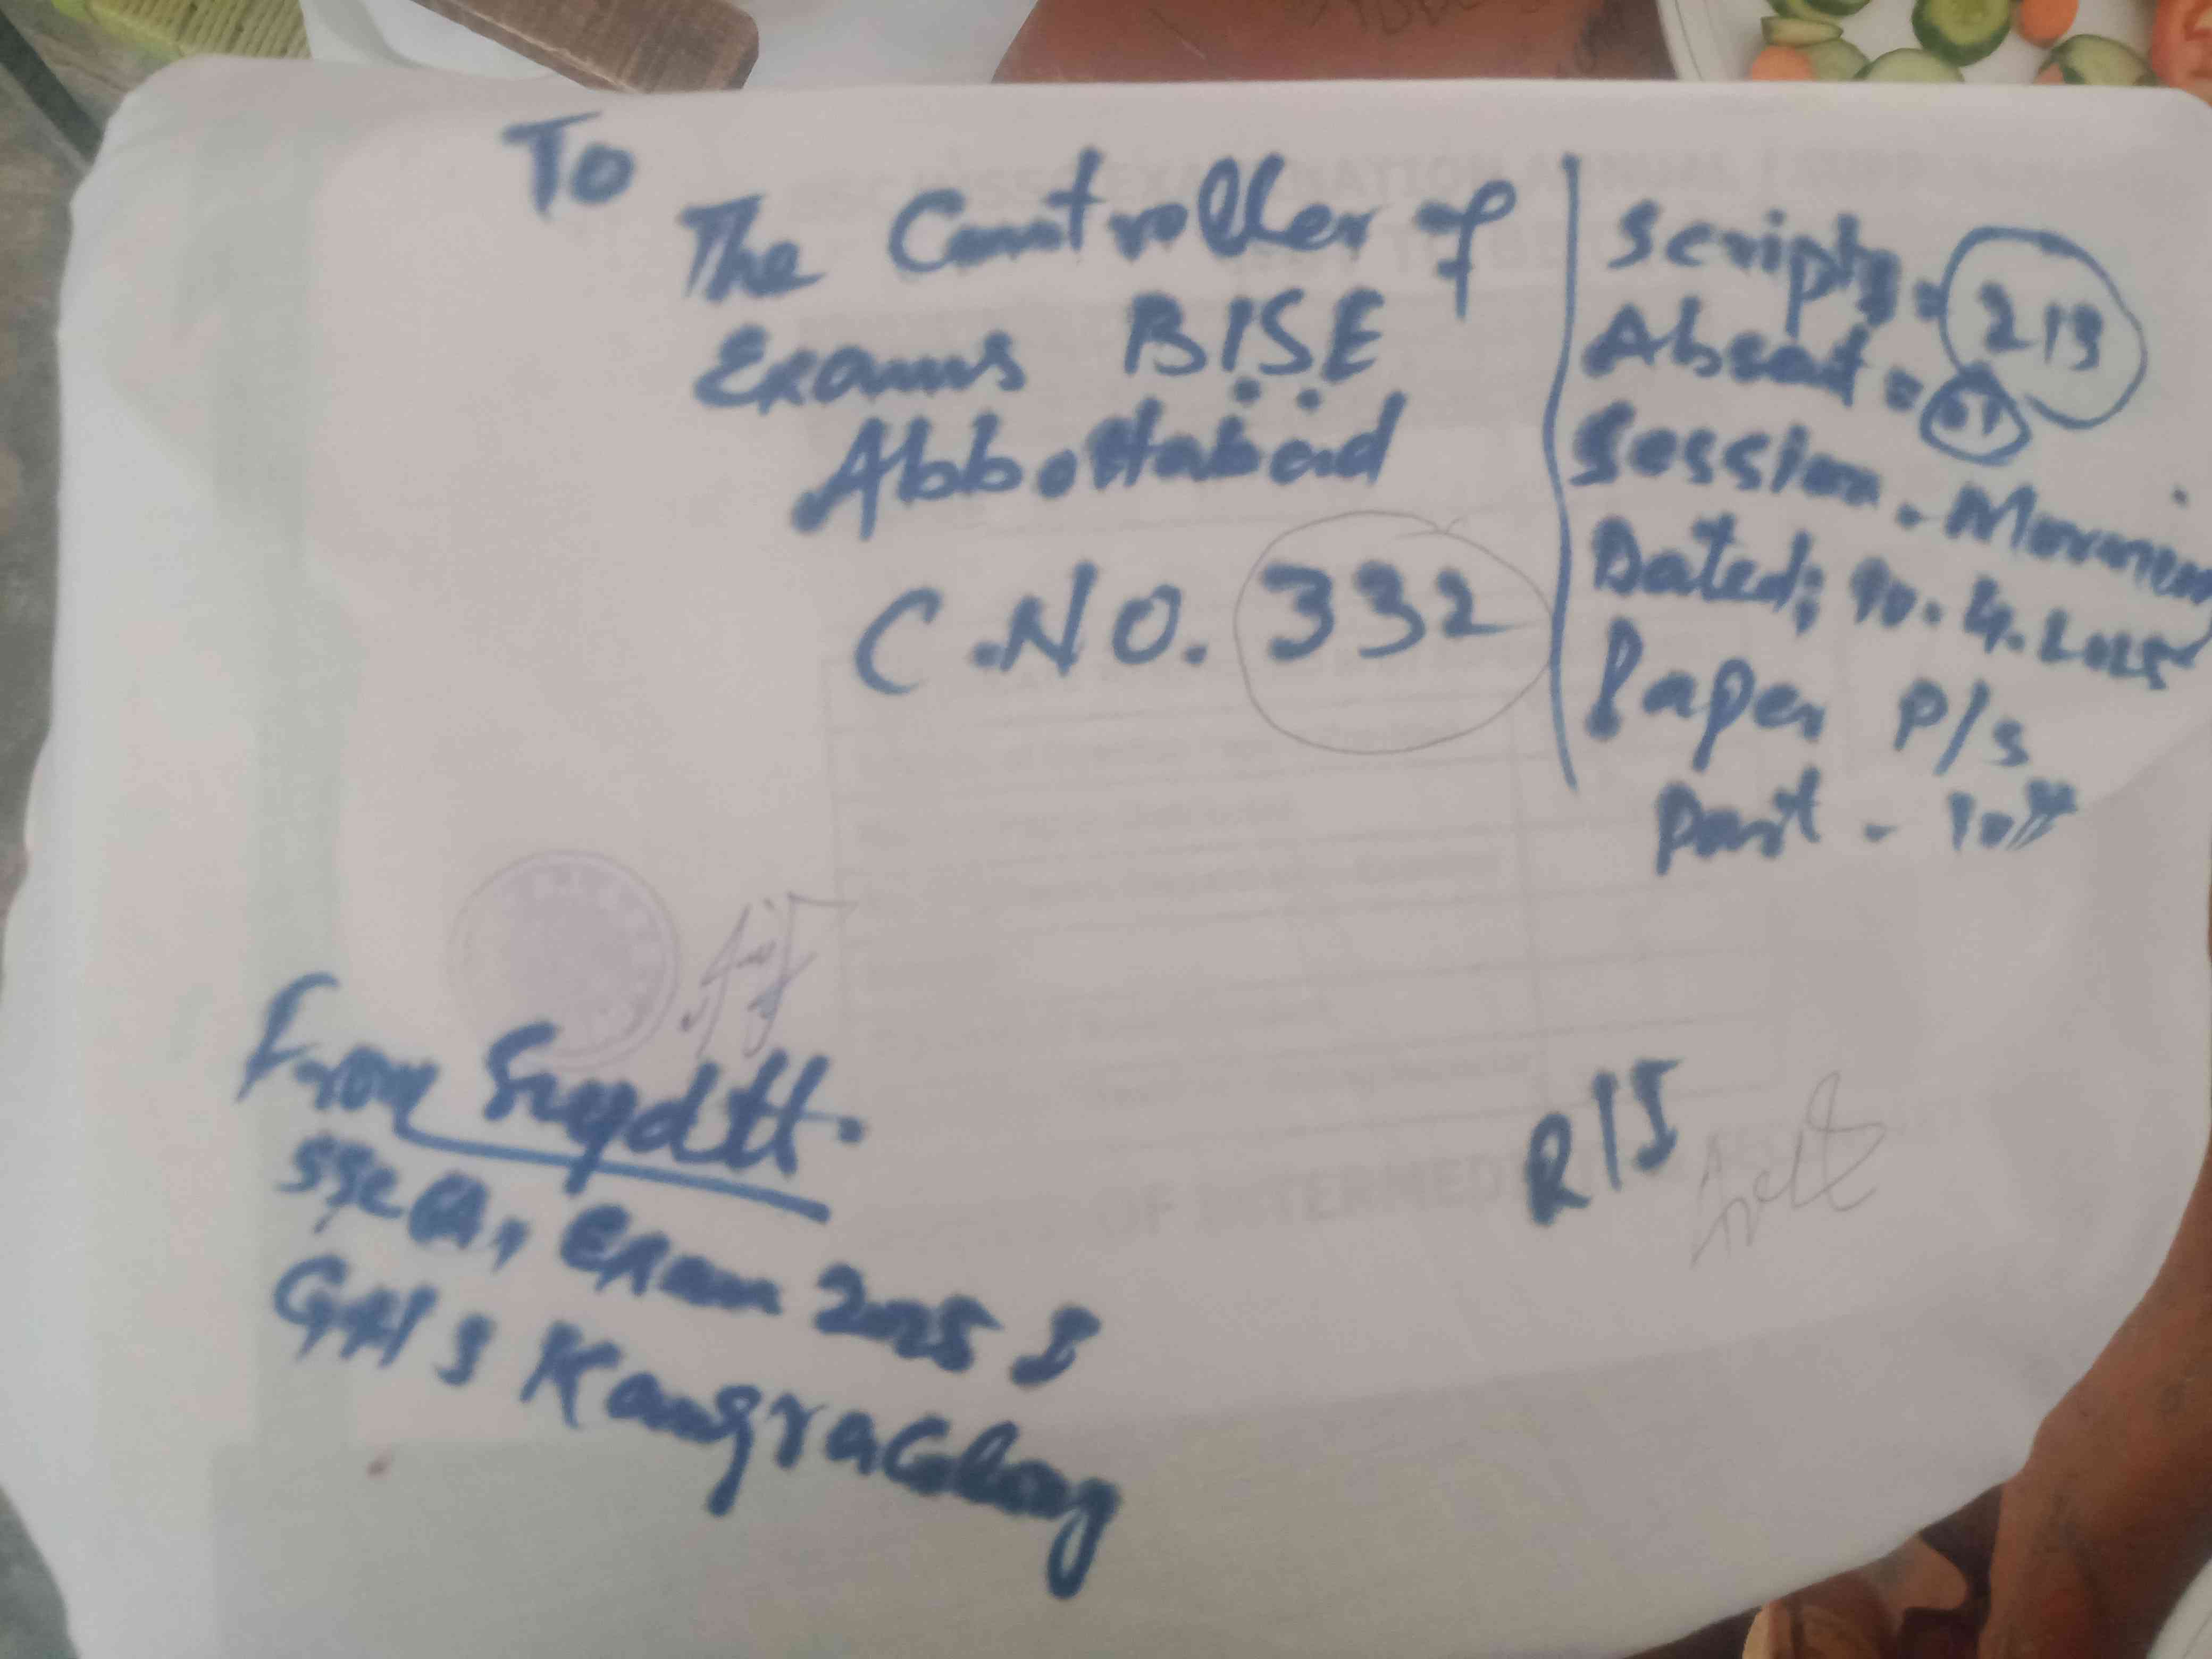 To
The Controller of
Exams B.I.S.E
Abbottabad
C.NO. 332
Scripts = 213
Absent = 01
Session. Morning
Dated; 10.4.2025
Paper P/S
Part - 10th
From Supdtt.
SSC (A), Exam 2025
GHS
R/S
OF INTERMED